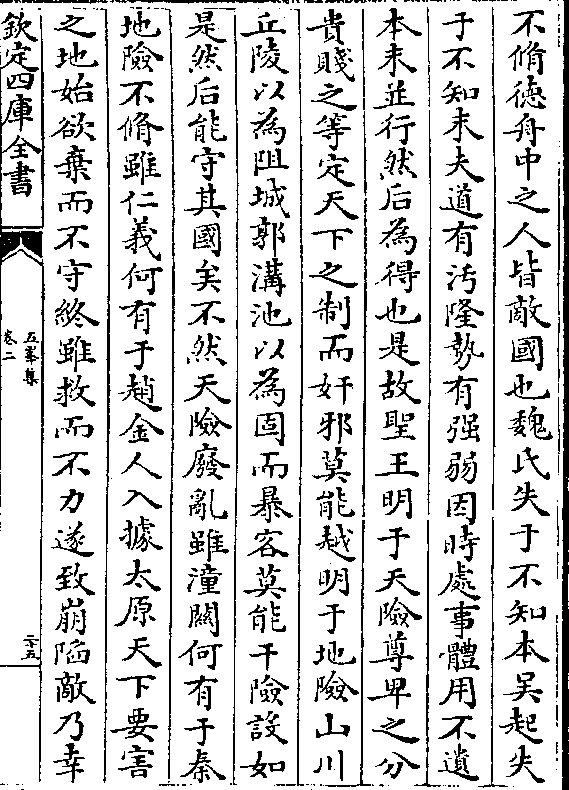 不脩德舟中之人皆敵國也魏氏失于不知本吳起失
于不知末夫道有汚隆勢有强弱因時處事體用不遺
本末並行然后為得也是故聖王明于天險尊卑之分
貴賤之等定天下之制而奸邪莫能越明于地險山川
丘陵以為阻城郭溝池以為固而暴客莫能干險設如
是然后能守其國矣不然天險廢亂雖潼關何有于秦
地險不脩雖仁義何有于趙金人入據太原天下要害
之地始欲棄而不守終雖救而不力遂致崩陷敵乃幸
欽定四庫全書
五峯集
卷二
二十五